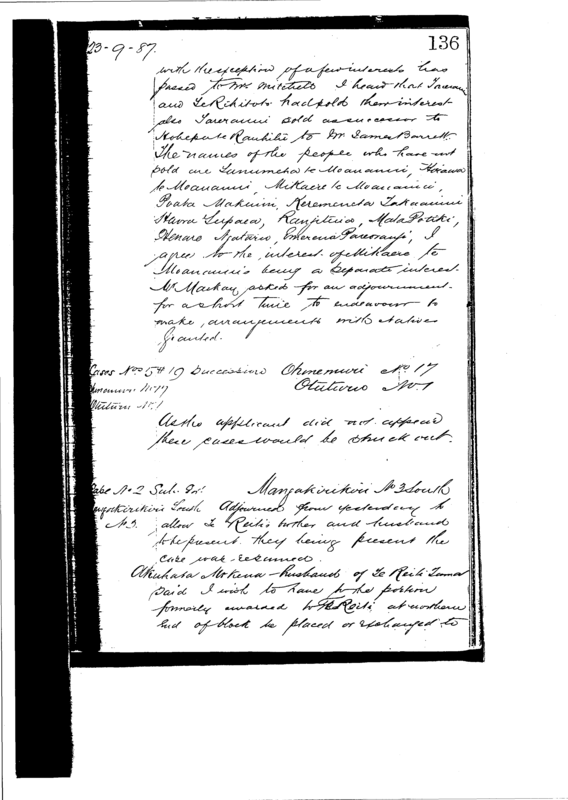 23-9-87.
136
with the exception of a few interests has
passed to Mr Mitchell I heard that
and Te Kikitoto had sold their interest
also Tareranui sold as successor to
Hohepa te Rauhihi to Mr James Barrett.
The names of the people who have not
sold are te Moananui,
te Moananui, Mikaere te Moananui,
Poata Keremeneta
Hawra Supaea, Mata Potiki,
I
agree to the interest of Mikaere te
Moananui being a separate interest.
Mr Mackay asked for an adjournment
for a short time to endeavour to
make arrangements with Natives
Granted.
Cases Nos 5 & 19 Successions Ohinemuri No 17
Ohinemuri No 17 Otuturu No 1
Otuturu No 1
As the applicant did not appear
these cases would be struck out.
Case No 2 Sub. Mangakirikiri No 3 South
Mangakirikiri South Adjourned from yesterday to
No 3. allow Te Reiti's brother and husband
to be present. they being present the
case was resumed.
Akuhata Mokena - husband of Te Reiti
said I wish to have the portion
formerly awarded to Te Reiti at northern
end of block be placed or exchanged to